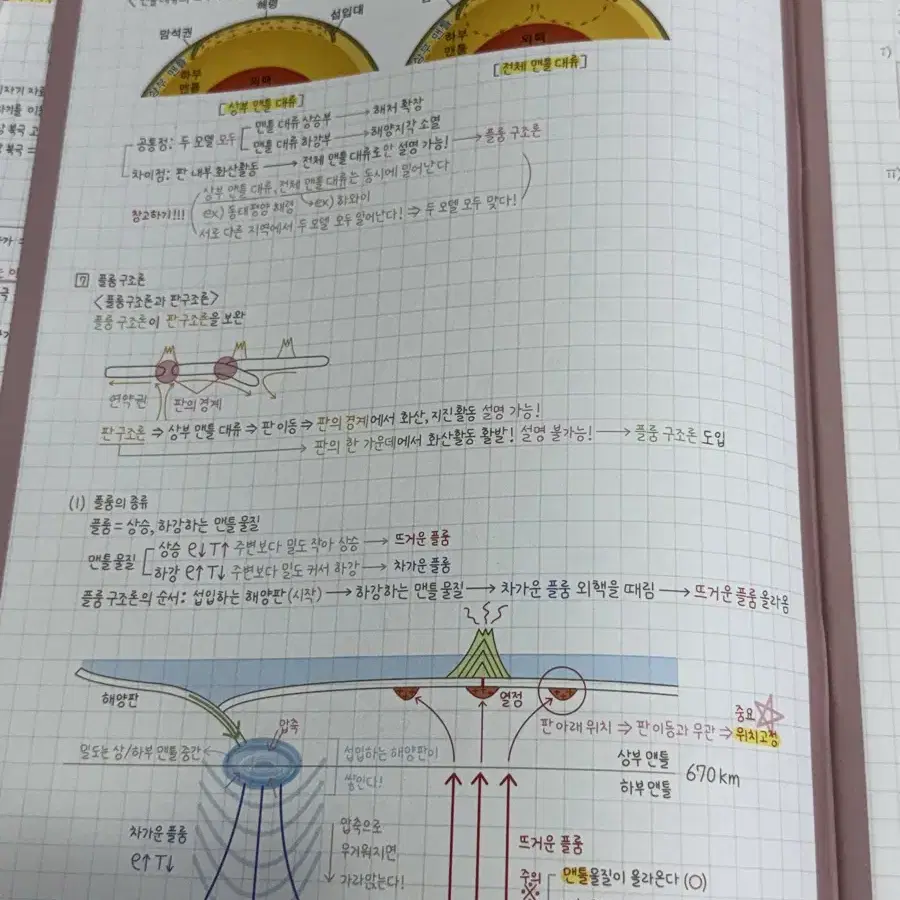 해령
섭입대
암석권
상부 맨틀
하부
맨틀
외핵
하부
맨틀
외핵
[상부 맨틀 대류]
[전체 맨틀 대류]
공통점: 두 모델 모두
맨틀 대류 상승부 → 해저 확장
맨틀 대류 하강부 → 해양지각 소멸
차이점: 판 내부 화산활동 → 전체 맨틀 대류로만 설명 가능! → 플룸 구조론
참고하기!!!
상부 맨틀 대류, 전체 맨틀 대류는 동시에 일어난다
ex) 동태평양 해령 ex) 하와이
서로 다른 지역에서 두 모델 모두 일어난다! ⇒ 두 모델 모두 맞다!
7 플룸 구조론
<플룸구조론과 판구조론>
플룸 구조론이 판구조론을 보완
연약권
판의 경계
판구조론 ⇒ 상부 맨틀 대류 ⇒ 판 이동 ⇒ 판의 경계에서 화산, 지진활동 설명 가능!
판의 한 가운데에서 화산활동 활발! 설명 불가능! → 플룸 구조론 도입
(1) 플룸의 종류
플룸 = 상승, 하강하는 맨틀 물질
맨틀 물질
상승 ρ↓ T↑ 주변보다 밀도 작아 상승 → 뜨거운 플룸
하강 ρ↑ T↓ 주변보다 밀도 커서 하강 → 차가운 플룸
플룸 구조론의 순서: 섭입하는 해양판 (시작) → 하강하는 맨틀 물질 → 차가운 플룸 외핵을 때림 → 뜨거운 플룸 올라옴
해양판
열점
중요
판 아래 위치 ⇒ 판 이동과 무관 ⇒ 위치고정
압축
밀도는 상/하부 맨틀 중간
섭입하는 해양판이
쌓인다!
상부 맨틀
하부 맨틀
670km
차가운 플룸
ρ↑ T↓
압축으로
무거워지면
가라앉는다!
뜨거운 플룸
주의
맨틀물질이 올라온다 (O)